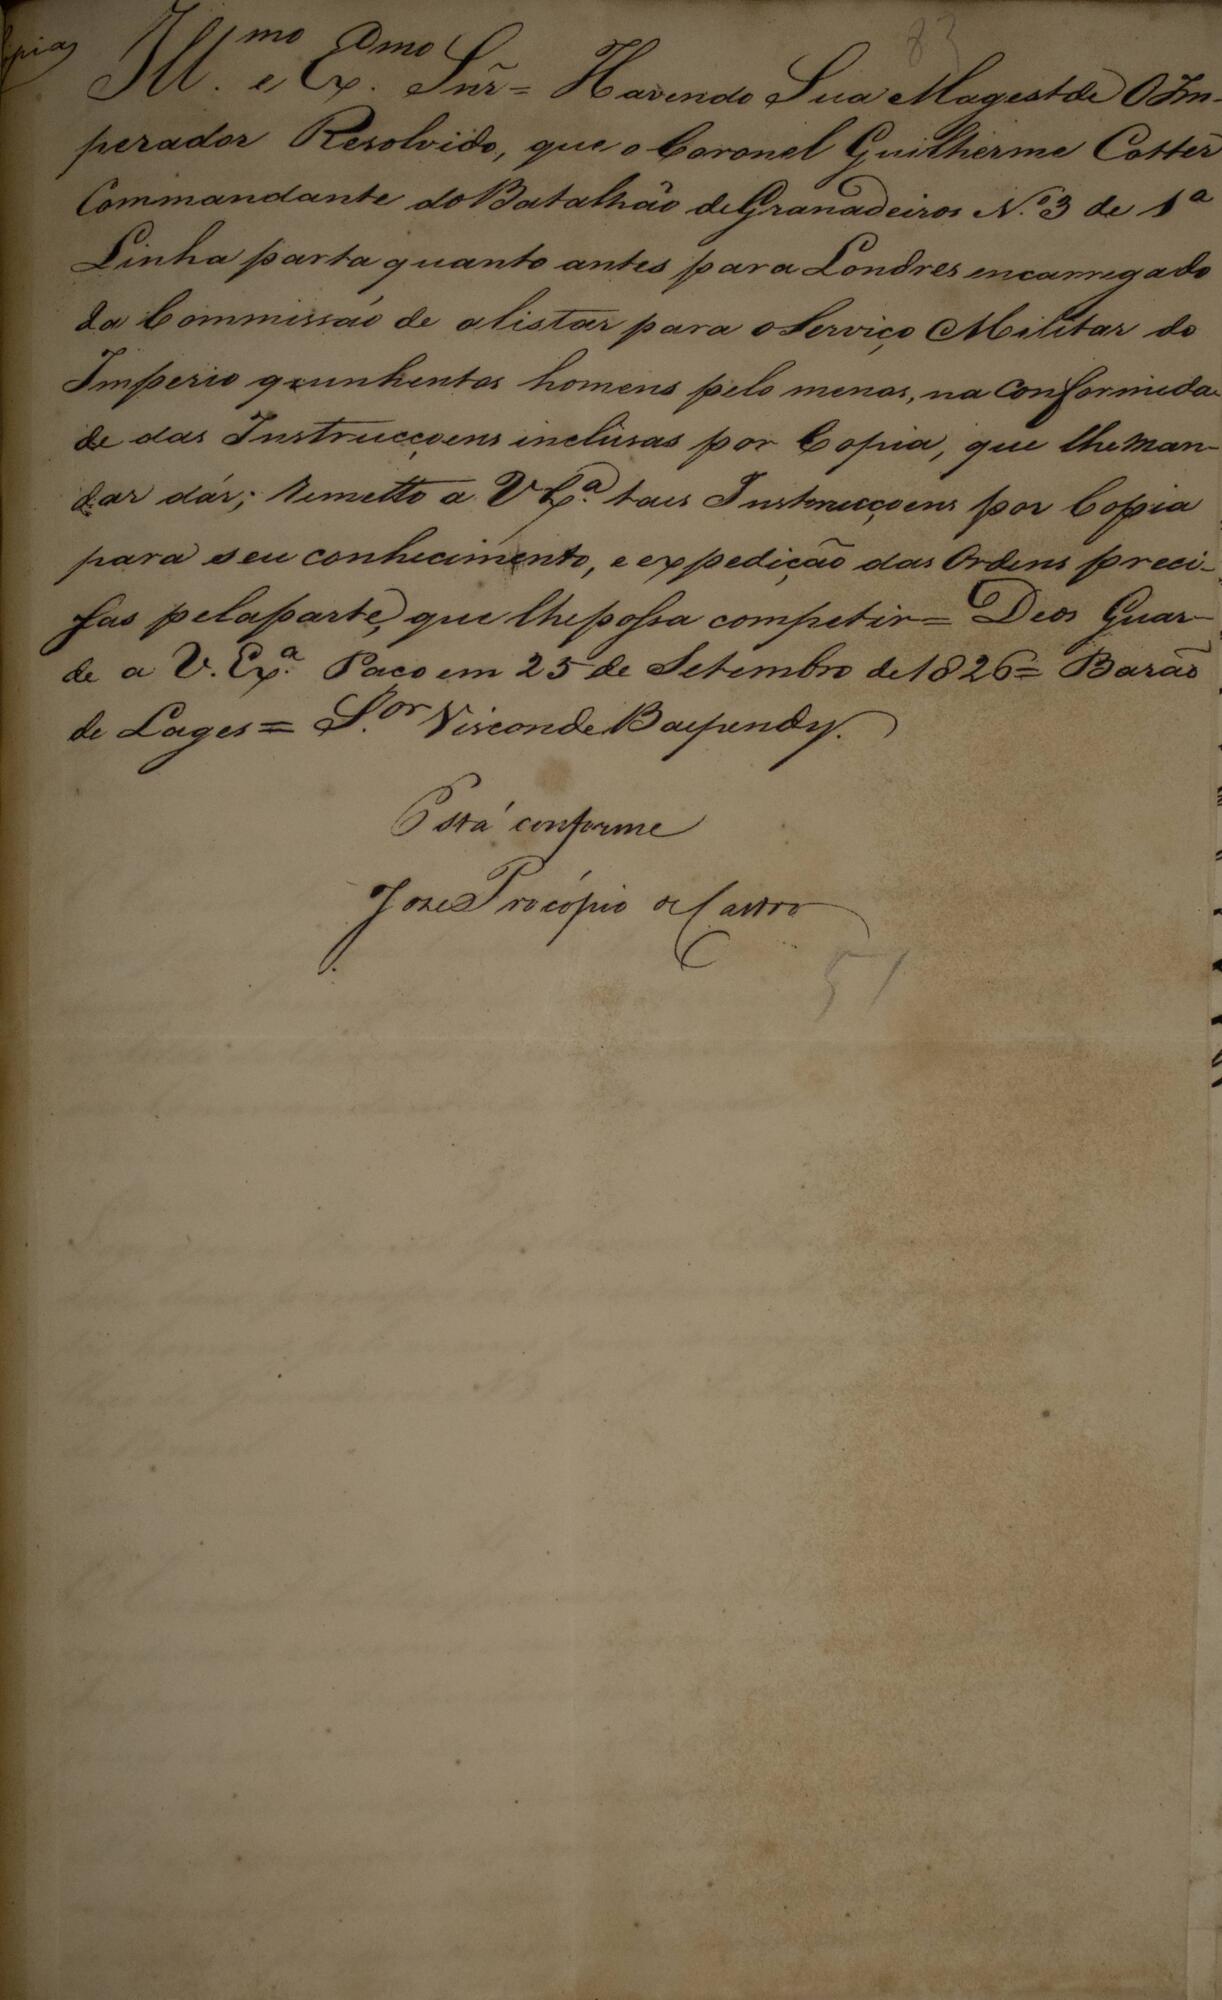 83
Ill.mo e Ex.mo Snr̃ = Havendo Sua Magestde O Im-
perador Resolvido, que o Coronel Guilherme Cotter
Commandante do Batalhão de Granadeiros N.o 3 de 1a
Linha parta quanto antes para Londres encarregado
da Commissaõ de alistar para o Serviço Militar do
Imperio quinhentos homens pelo menos, na Conformida-
de das Instrucçoens inclusas por Copia, que lhe man-
dar dár; Remetto a V Ex.a taes Instrucçoens por Copia
para seu conhecimento, e expedição das Ordens preci-
sas pela parte, que lhe possa competir = Deos Guar-
de a V. Ex.a Paço em 25 de Setembro de 1826 = Barão
de Lages = S.or Visconde Baependy.
Está conforme
Joze Procópio de Castro
51